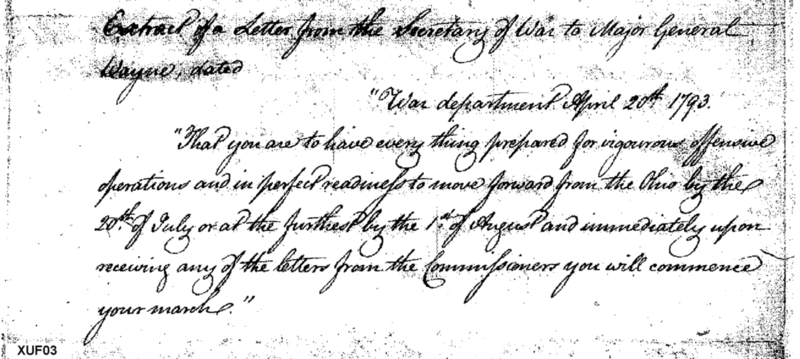 Extract of a Letter from the Secretary of War to Major General
Wayne, dated
"War department April 20th. 1793.
"That you are to have every thing prepared for vigourous offensive
operations and in perfect readiness to move forward from the Ohio by the
20th. of July or at the furthest by the 1st. of August and immediately upon
receiving any of the letters from the Commissioners you will commence
your march."
XUF03